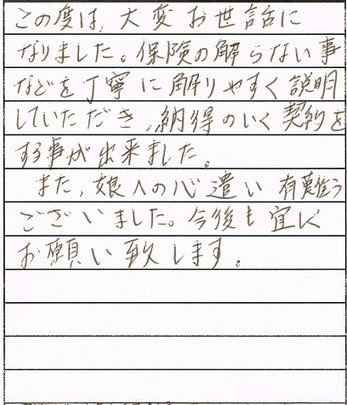 この度は、大変お世話に
なりました。保険の解らない事
などを丁寧に解りやすく説明
していただき、納得のいく契約を
する事が出来ました。
また、娘への心遣い有難う
ございました。今後も宜しく
お願い致します。